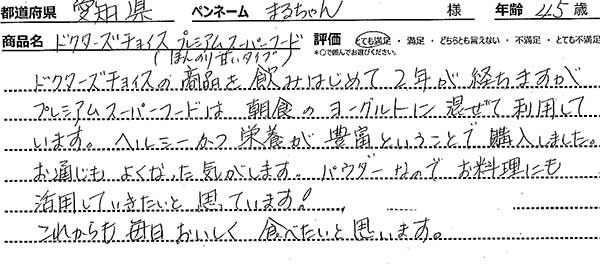 都道府県 愛知県 ペンネーム まるちゃん 様 年齢 45 歳
商品名 ドクターズチョイス プレミアムスーパーフード 評価 とても満足 ・ 満足 ・ どちらとも言えない ・ 不満足 ・ とても不満足
(ほんのり甘いタイプ) *○で囲んでお選びください。
ドクターズチョイスの商品を飲みはじめて2年が経ちますが
プレミアムスーパーフードは朝食のヨーグルトに混ぜて利用して
います。ヘルシーかつ栄養が豊富ということで購入しました。
お通じもよくなった気がします。パウダーなのでお料理にも
活用していきたいと思っています!
これからも毎日おいしく食べたいと思います。